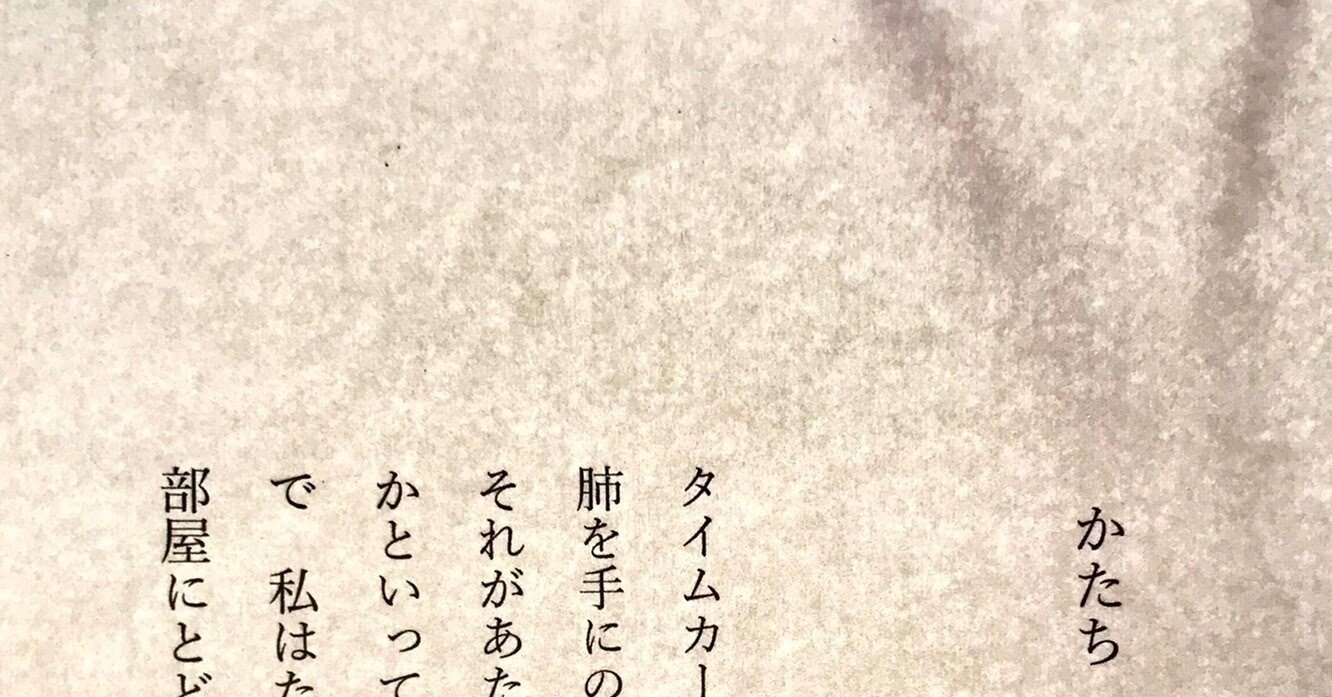 かたち
タイムカー
肺を手にの
それがあた
かといって
で　私はた
部屋にとど